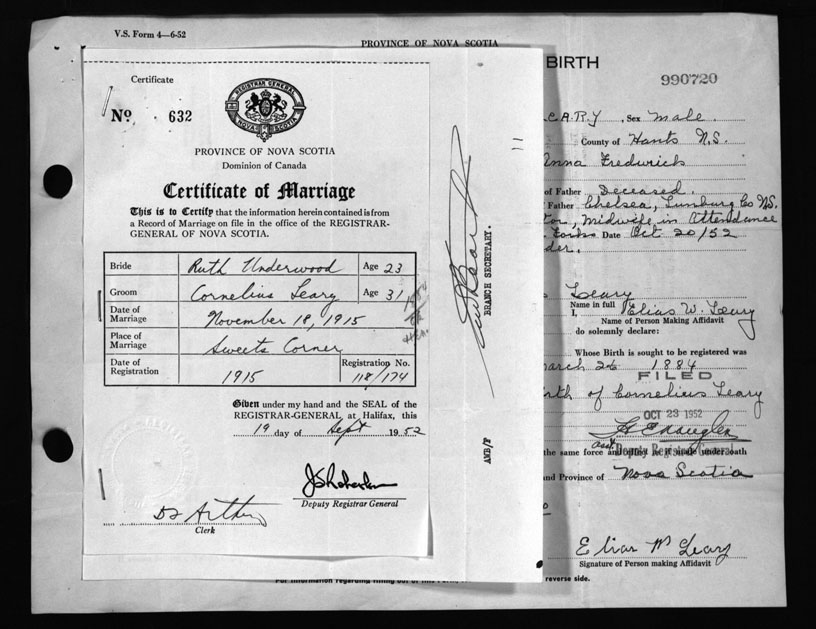 V.S. Form 4—6-52
PROVINCE OF NOVA SCOTIA
Certificate
No. 632
REGISTRAR GENERAL
NOVA SCOTIA
PROVINCE OF NOVA SCOTIA
Dominion of Canada
Certificate of Marriage
This is to Certify that the information herein contained is from
a Record of Marriage on file in the office of the REGISTRAR-
GENERAL OF NOVA SCOTIA.
Bride Ruth Underwood Age 23
Groom Cornelius Leary Age 31
Date of
Marriage November 18, 1915
Place of
Marriage Sweets Corner
Date of
Registration 1915
Registration No.
118/174
Given under my hand and the SEAL of the
REGISTRAR-GENERAL at Halifax, this
19 day of Sept 1952
Deputy Registrar General
Clerk
BRANCH SECRETARY.
AMB/F
BIRTH
990720
EARY, Sex male.
County of Hants N.S.
Anna Fredrick
of Father Deceased.
of Father Chelsea, Lunburg Co N.S.
tor, Midwife, in Attendance
Forks Date Oct 20/52
der.
Leary
Name in full
I, Elias W. Leary
Name of Person Making Affidavit
do solemnly declare:
Whose Birth is sought to be registered was
March 26 1884
FILED
rth of Cornelius Leary
OCT 23 1952
Asst. Deputy Registrar General
the same force and effect as if made under oath
and Province of Nova Scotia
Elias W Leary
Signature of Person making Affidavit
For information regarding filling out of this Form, reverse side.